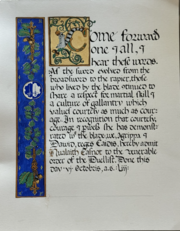 Come forward
one & all, &
hear these words.
As the sword evolved from the
broadsword to the rapier, those
who lived by the blade strived to
share a respect for martial skill &
a culture of gallantry which
valued courtesy as much as cour-
age. In recognition that courtesy,
courage & she has demonst-
rated the blade, we,
& David, hereby admit
to the
order of the Duellist. Done this
day